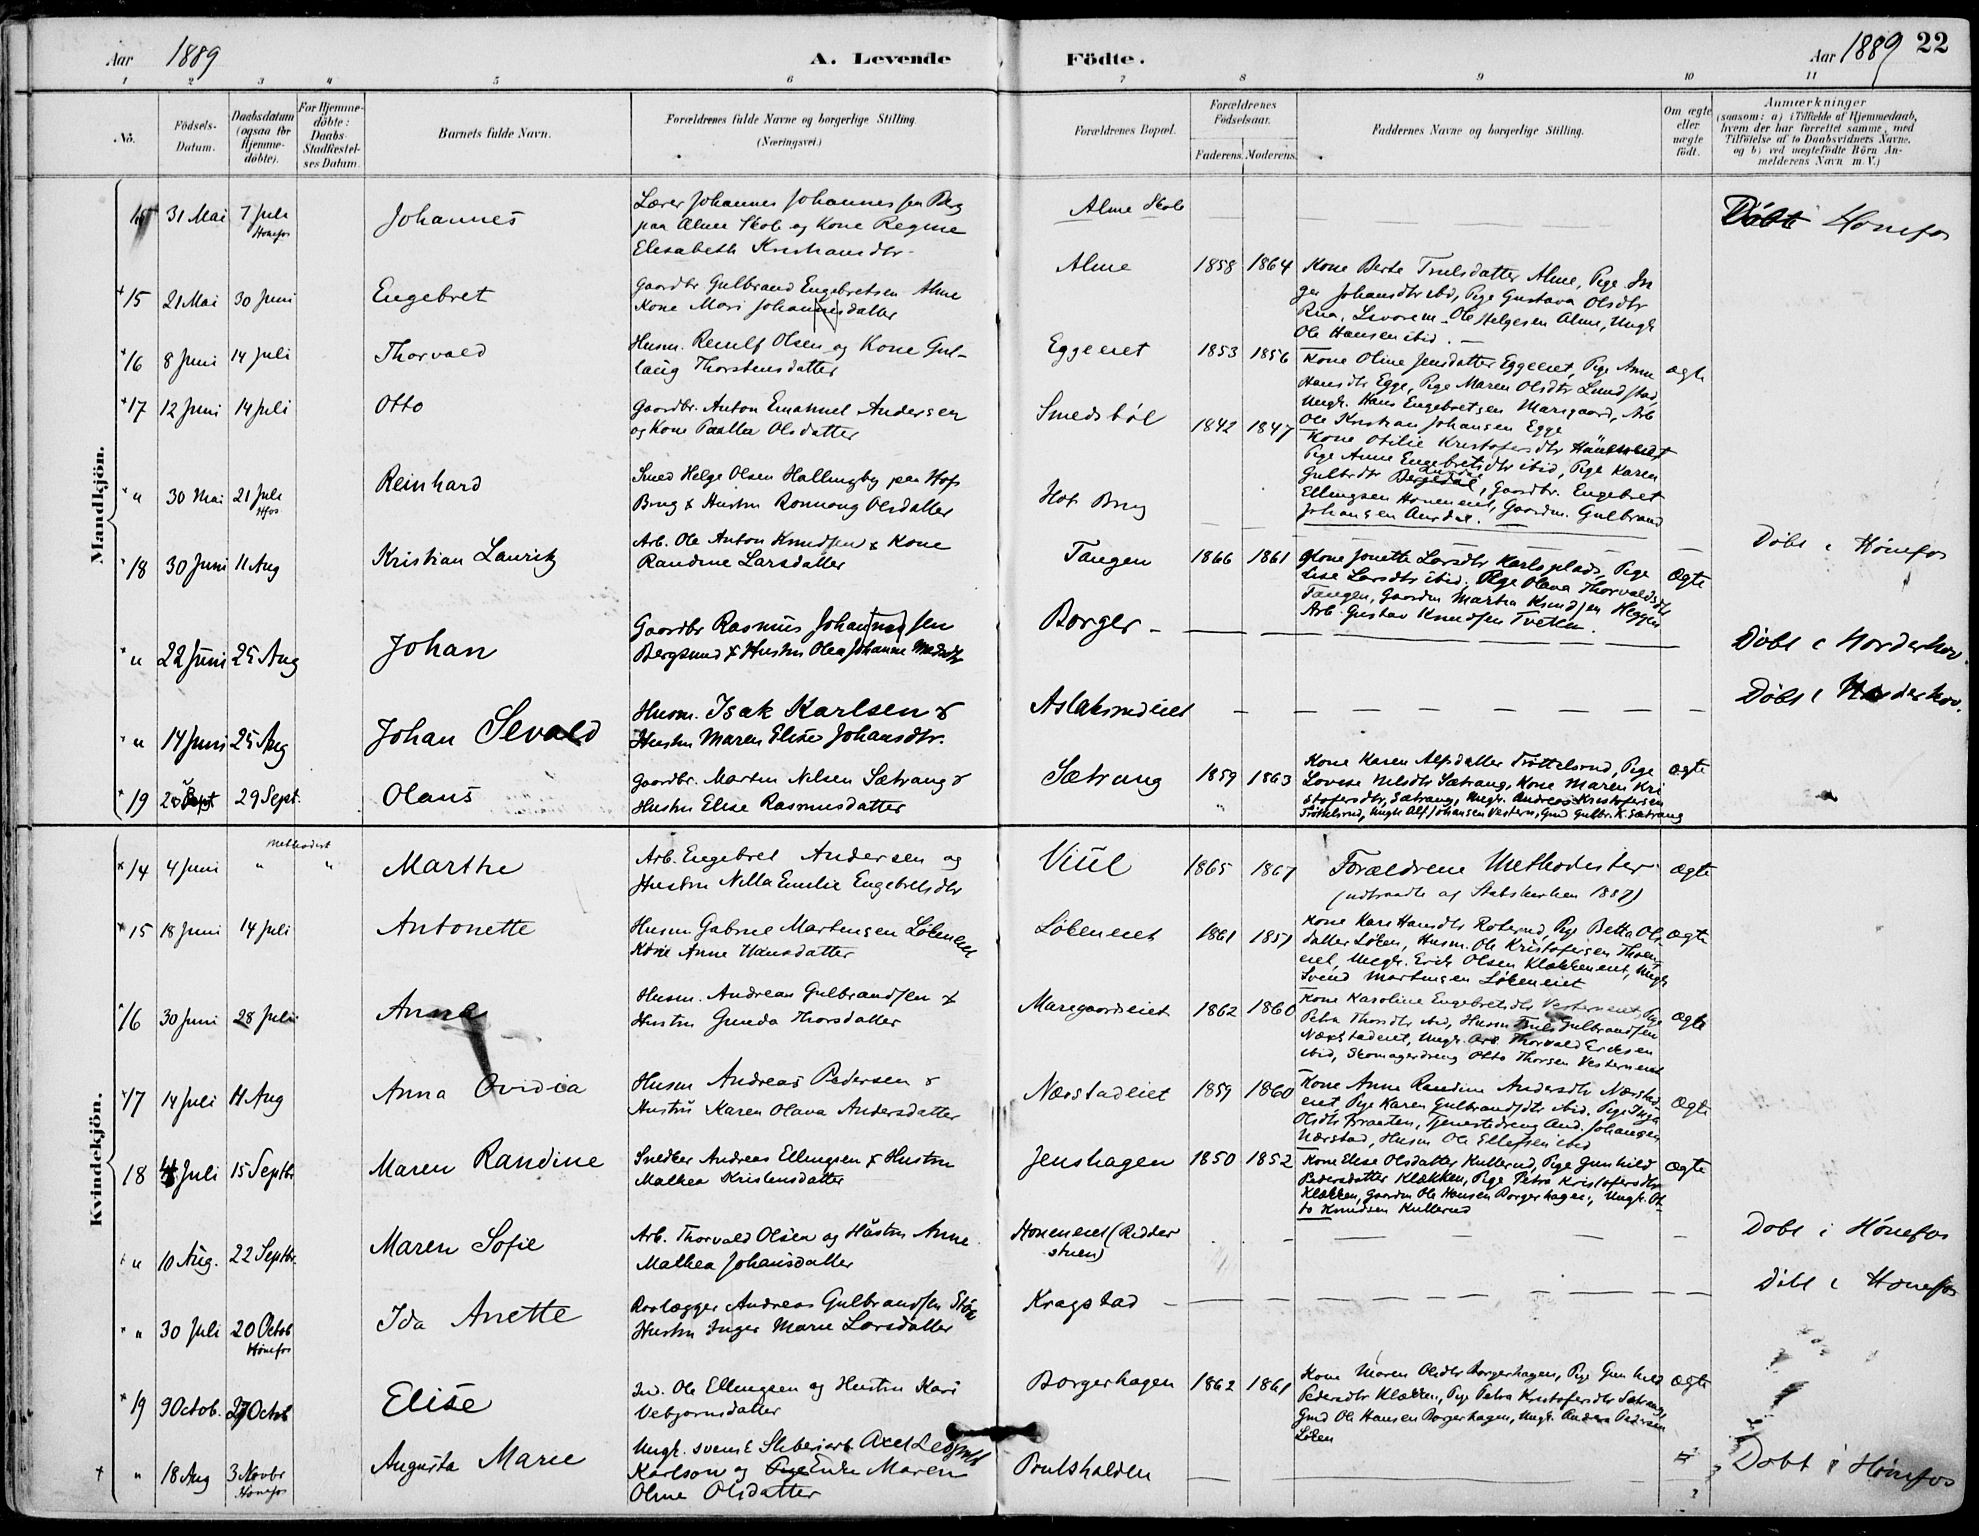 Aar 1889
A. Levende Födte.
Aar 1889 22
1 2 3 4 5 6 7 8 9 10 11
No.
Födsels-Datum.
Daabsdatum (ogsaa for Hjemme-döbte).
For Hjemme-döbte: Daabs-Stadfæstel-ses Datum.
Barnets fulde Navn.
Forældrenes fulde Navne og borgerlige Stilling. (Næringsvei.)
Forældrenes Bopæl.
Forældrenes Födselsaar.
Faderens. Moderens.
Faddernes Navne og borgerlige Stilling.
Om ægte eller uægte födt.
Anmærkninger
(saasom: a) i Tilfælde af Hjemmedaab, hvem der har forrettet samme, med Tilföielse af to Daabsvidners Navne, og b) ved uægtefödte Börn An-melderens Navn m.V.)
Mandkjön.
31 Mai 7 Juli Hönefos Johannes
Lærer Johannes Johannessen Berg
paa Alme Skole og Kone Regine
Elisabeth Kristiansdtr.
Alme Skole
Döbt Hönefos
15 21 Mai 30 Juni Engebret
Gaardbr Gulbrand Engebretsen Alme
Kone Mari Johannesdatter
Alme 1858 1864
Kone Berte Truelsdatter Alme, Pige In
ger Johansdtr ibid, Pige Gustava Olsdtr
Rua, Ole Helgesen Alme, Ungk.
Ole Hansen ibid.
16 8 Juni 14 Juli Thorvald
Husm. Reiulf Olsen og Kone Gul-
laug Thorstensdatter
Eggeeiet 1853 1856
Kone Oline Jensdatter Eggeeiet, Pige Anne
Hansdtr Egge, Pige Maren Olsdtr Lundstad,
Ungk. Hans Engebretsen Marigaard, Arb
Ole Kristian Johansen Egge
ægte
17 12 Juni 14 Juli Otto
Gaardbr. Anton Emanuel Andersen
og Kone Olsdatter
Smedsböl 1842 1847
Kone Otilie Kristofersdtr
Pige Anne Engebretsdtr ibid, Pige Karen
Gulbrdtr, Gaardbr. Engebret
Ellingsen Höneneiet, Gaardm. Gulbrand
Johansen Aurdal.
" 30 Mai 21 Juli Hfos Reinhard
Smed Helge Olsen Hallingby paa Hofs
Brug & Hustru Ronnaug Olsdatter
Hofs Brug
Döbt i Hönefos
18 30 Juni 11 Aug Kristian Lauritz
Arb. Ole Anton Knudsen & Kone
Randine Larsdatter
Tangen 1866 1861
Kone Jonette Larsdtr Karlsplads, Pige
Lise Larsdtr ibid, Pige Olava Thorvaldsdtr
Tangen, Gaardm Martin Knudsen Heggen
Arb. Gustav Knudsen Tveten.
Ægte
" 22 Juni 25 Aug Johan
Gaardbr Rasmus Johannessen
Bergsund & Hustru Olea Johanne
Borger
Döbt i Norderhov.
" 14 Juni 25 Aug Johan Sevald
Husm. Isak Karlsen &
Hustru Maren Elise Johansdtr.
Aslaksrudeiet
Döbt i Norderhov.
19 29 Sept. Olaus
Gaardbr. Martin Nilsen Sætrang &
Hustru Elise Rasmusdatter
Sætrang 1859 1863
Kone Karen Alfsdatter Tröttelsrud, Pige
Lovise Nilsdtr Sætrang, Kone Maren Kri
stofersdtr, Sætrang, Ungk. Andreas Kristofersen
Tröttelsrud, Ungk Alf Johansen Vestern, Gmd Gulbr. K. Sætrang
ægte
Kvindekjön.
14 4 Juni " Methodist " Marthe
Arb. Engebret Andersen og
Hustru Nilla Emilie Engebretsdtr
Viul 1865 1867
Forældrene Methodister
(udtraadte af Statskirken 1887)
ægte
15 18 Juni 14 Juli Antonette
Husm Gabriel Martinsen Lökeneiet
Kone Anne Hansdatter
Lökeneiet 1861 1851
Kone Kari Hansdtr Rolsrud, Pige Betta Ols
datter Löken, Husm. Ole Kristofersen
eiet, Ungk. Erik Olsen Klækkeneiet, Ungk
Svend Martinsen Lökeneiet
ægte
16 30 Juni 28 Juli Anna
Husm. Andreas Gulbrandsen &
Hustru Gunda Thorsdatter
Marigaardeiet 1862 1860
Kone Karoline Engebretsdtr Vesterneiet, Pige
Petra Thorsdtr ibid, Husm Truls Gulbrandsen
Nærstadeiet, Ungk. Arb. Thorvald Ericksen
ibid, Skomagerdreng Otto Thorsen Vesterneiet
ægte
17 14 Juli 11 Aug Anna Ovidia
Husm Andreas Pedersen &
Hustru Karen Olava Andersdatter
Nærstadeiet 1859 1860
Kone Anne Randine Andersdtr Nærstad-
eiet, Pige Karen Gulbrandsdtr ibid. Pige Inga
Olsdtr Braaten, Tjenestedreng And. Johansen
Nærstad, Husm Ole Ellefsen ibid
Ægte
18 Juli 15 Septbr Maren Randine
Snedker Andreas Ellingsen & Hustru
Mathea Kristensdatter
Jenshagen 1850 1852
Kone Elise Olsdatter Kullerud, Pige Gunhild
Pedersdatter Klækken, Pige Petra Kristofersdtr
Klækken, Gaardm Ole Hansen Borgerhagen, Ungk. Ot-
to Knudsen Kullerud
ægte
" 10 Aug. 22 Septbr. Maren Sofie
Arb. Thorvald Olsen og Hustru Anne
Mathea Johansdatter
Höneneiet (Ridder
stuen)
Döbt i Hönefos
" 30 Juli 20 Octob Hönefos Ida Anette
Andreas Gulbrandsen
Hustru Inger Marie Larsdatter
Kragstad
Döbt i Hönefos
19 9 Octob. 27 Octob Elise
Ole Ellingsen og Hustru Kari
Vebjornsdatter
Borgerhagen 1862 1861
Kone Maren Olsdtr Borgerhagen, Pige Gunhild
Pedersdtr Klækken, Pige Petra Kristofersdtr
Gmd Ole Hansen Borgerhagen, Ungk. Anders Pedersen
Löken
ægte
" 18 Aug 3 Novbr Hönefos Augusta Marie
Ungk. svensk Sliberiarb. Axel
Karlson og Enke Maren
Oline Olsdatter
Prutshalden
Döbt i Hönefos